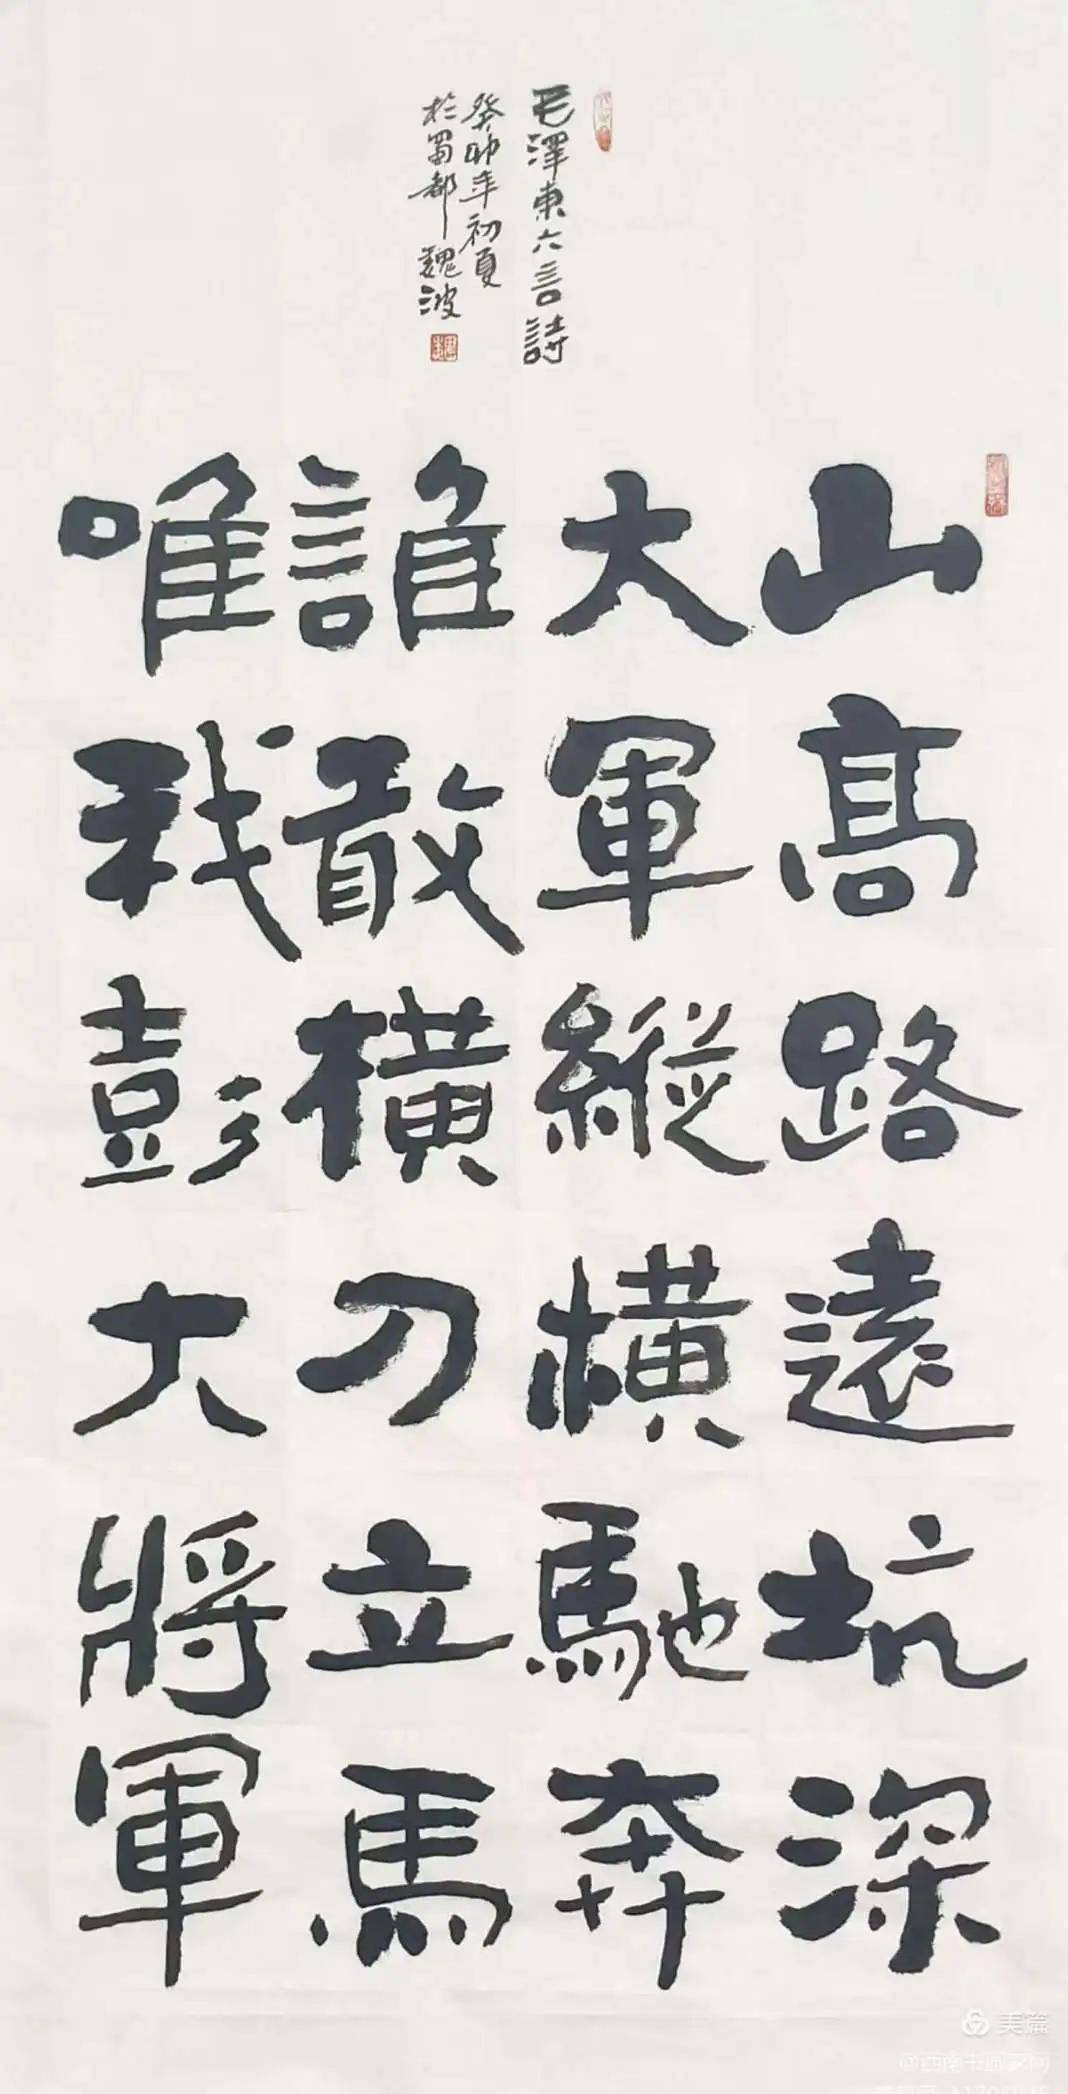 山高路遠坑深
大軍縱橫馳奔
誰敢橫刀立馬
唯我彭大將軍
毛澤東六言詩
癸卯年初夏
於蜀都魏波
美篇